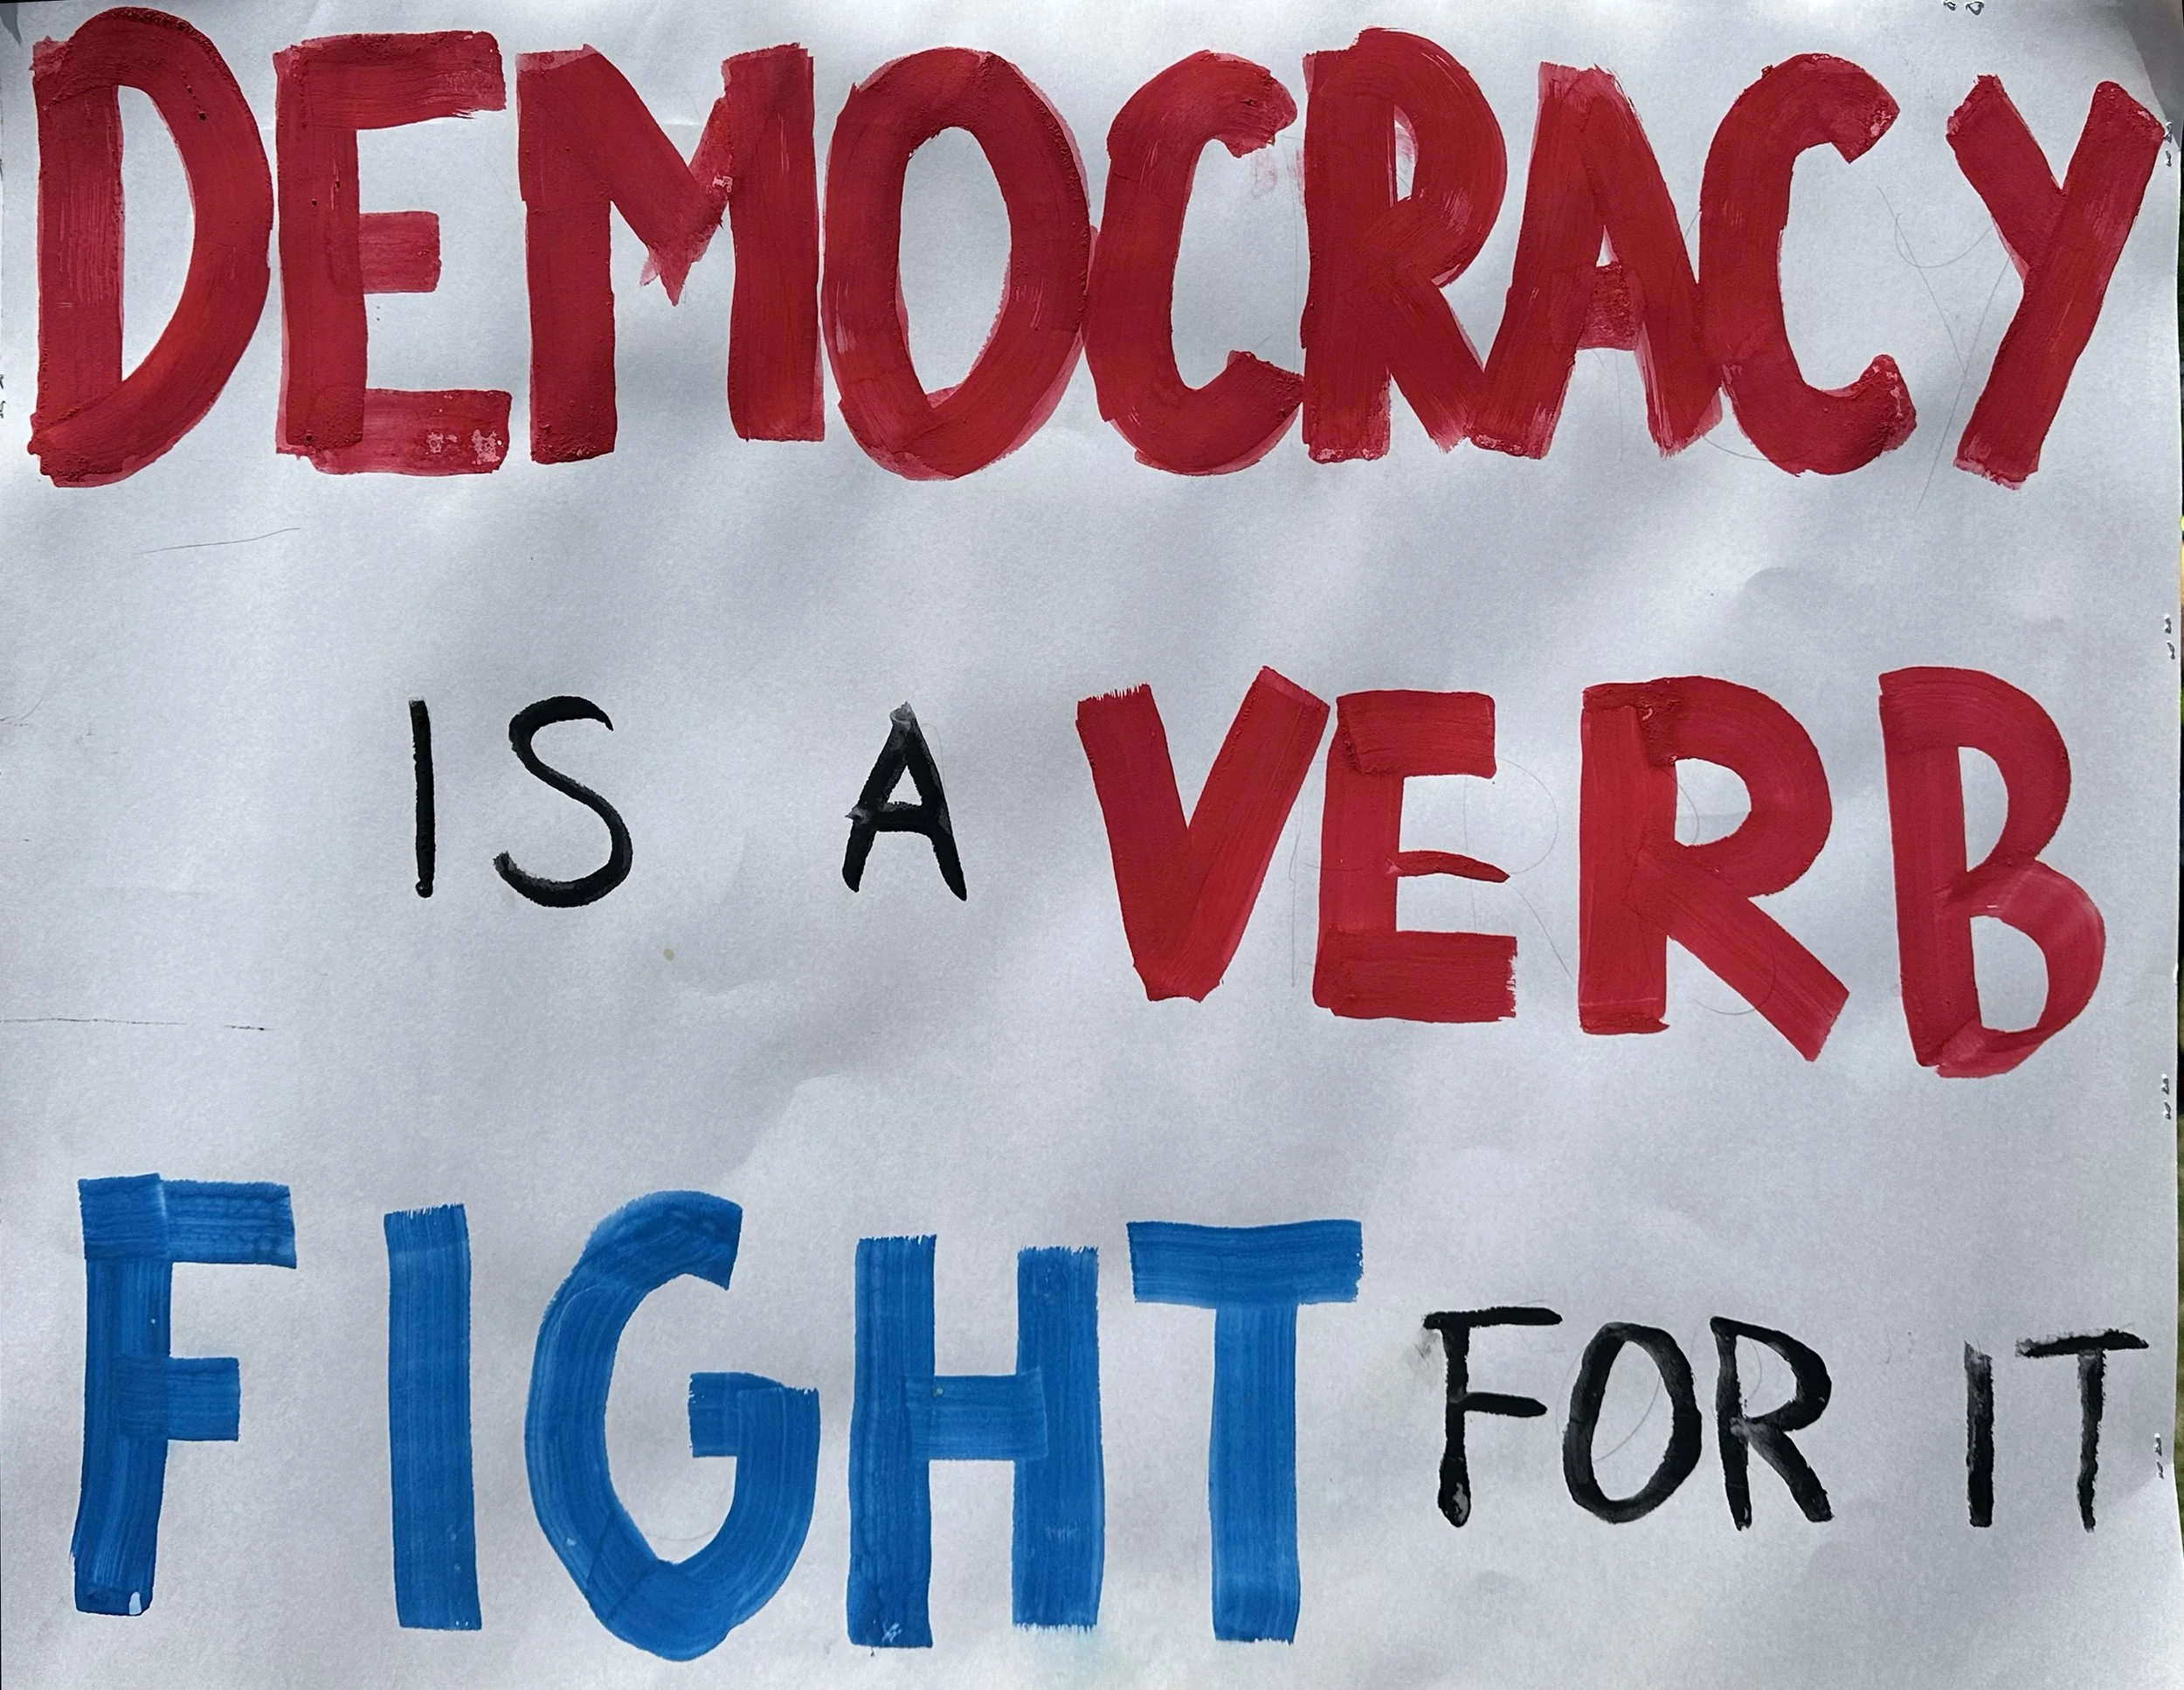 DEMOCRACY
IS A VERB
FIGHT FOR IT